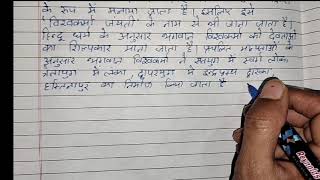 के रूप में मनाया जाता है। इसलिए इसे
'विश्वकर्मा जयंती' के नाम से भी जाना जाता है।
हिन्दू धर्म के अनुसार भगवान विश्वकर्मा को देवताओं
का शिल्पकार माना जाता है। प्रचलित मान्यताओं के
अनुसार भगवान विश्वकर्मा ने सतयुग में स्वर्ग लोक
त्रेतायुग में लंका द्वापरयुग में इन्द्रप्रस्थ द्वारका
हस्तिनापुर का निर्माण किया जाता है
Reynolds